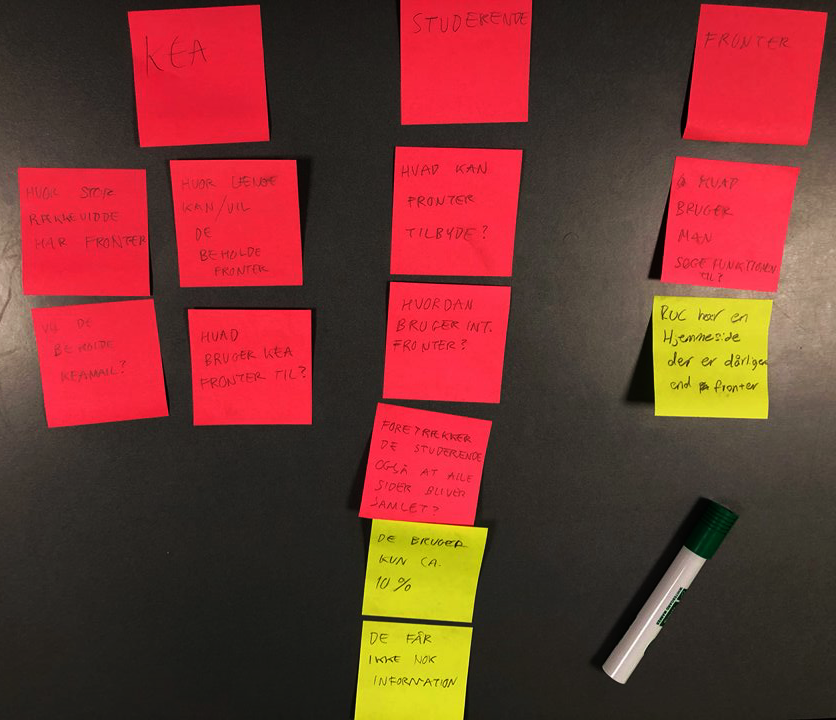 KEA
STUDERENDE
FRONTER
HVOR STOR
RÆKKEVIDDE
HAR FRONTER
HVOR LÆNGE
KAN/VIL
DE
BEHOLDE
FRONTER
VIL DE
BEHOLDE
KEAMAIL?
HVAD
BRUGER KEA
FRONTER TIL?
HVAD KAN
FRONTER
TILBYDE?
HVORDAN
BRUGER INT.
FRONTER?
FORETRÆKKER
DE STUDERENDE
OGSÅ AT ALLE
SIDER BLIVER
SAMLET?
DE BRUGER
KUN CA.
10 %
DE FÅR
IKKE NOK
INFORMATION
HVAD
BRUGER
MAN
SØGEFUNKTIONEN
TIL?
RUC har en
Hjemmeside
der er dårligere
end fronter